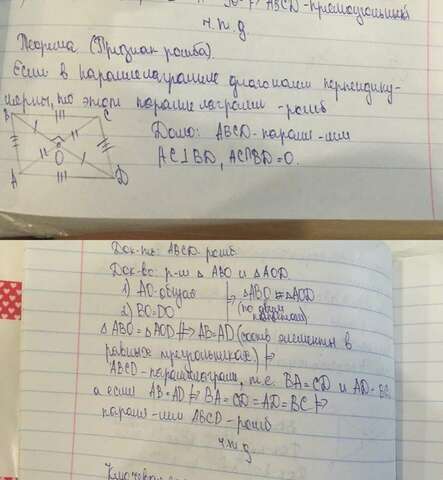 ABCD-прямоугольник
ч.т.д.
Теорема (Признак ромба).
Если в параллелограмме диагонали перпендику-
лярны, то этот параллелограмм -ромб
B
C
O
A
D
Дано: ABCD-паралл-мм
AC⊥BD, AC∩BD=O.
Док-ть: ABCD-ромб
Док-во: р-м △ ABO и △AOD
1) AO-общая
2) BO=DO
△ABO = △AOD
(по двум катетам)
△ ABO = △AOD ⇒ AB=AD (соотв. элементы в
равных треугольниках) ⇒
ABCD-параллелограмм, т.е. BA=CD и AD=BC
а если AB=AD ⇒ BA=CD=AD=BC ⇒
паралл-мм ABCD-ромб
ч.т.д.